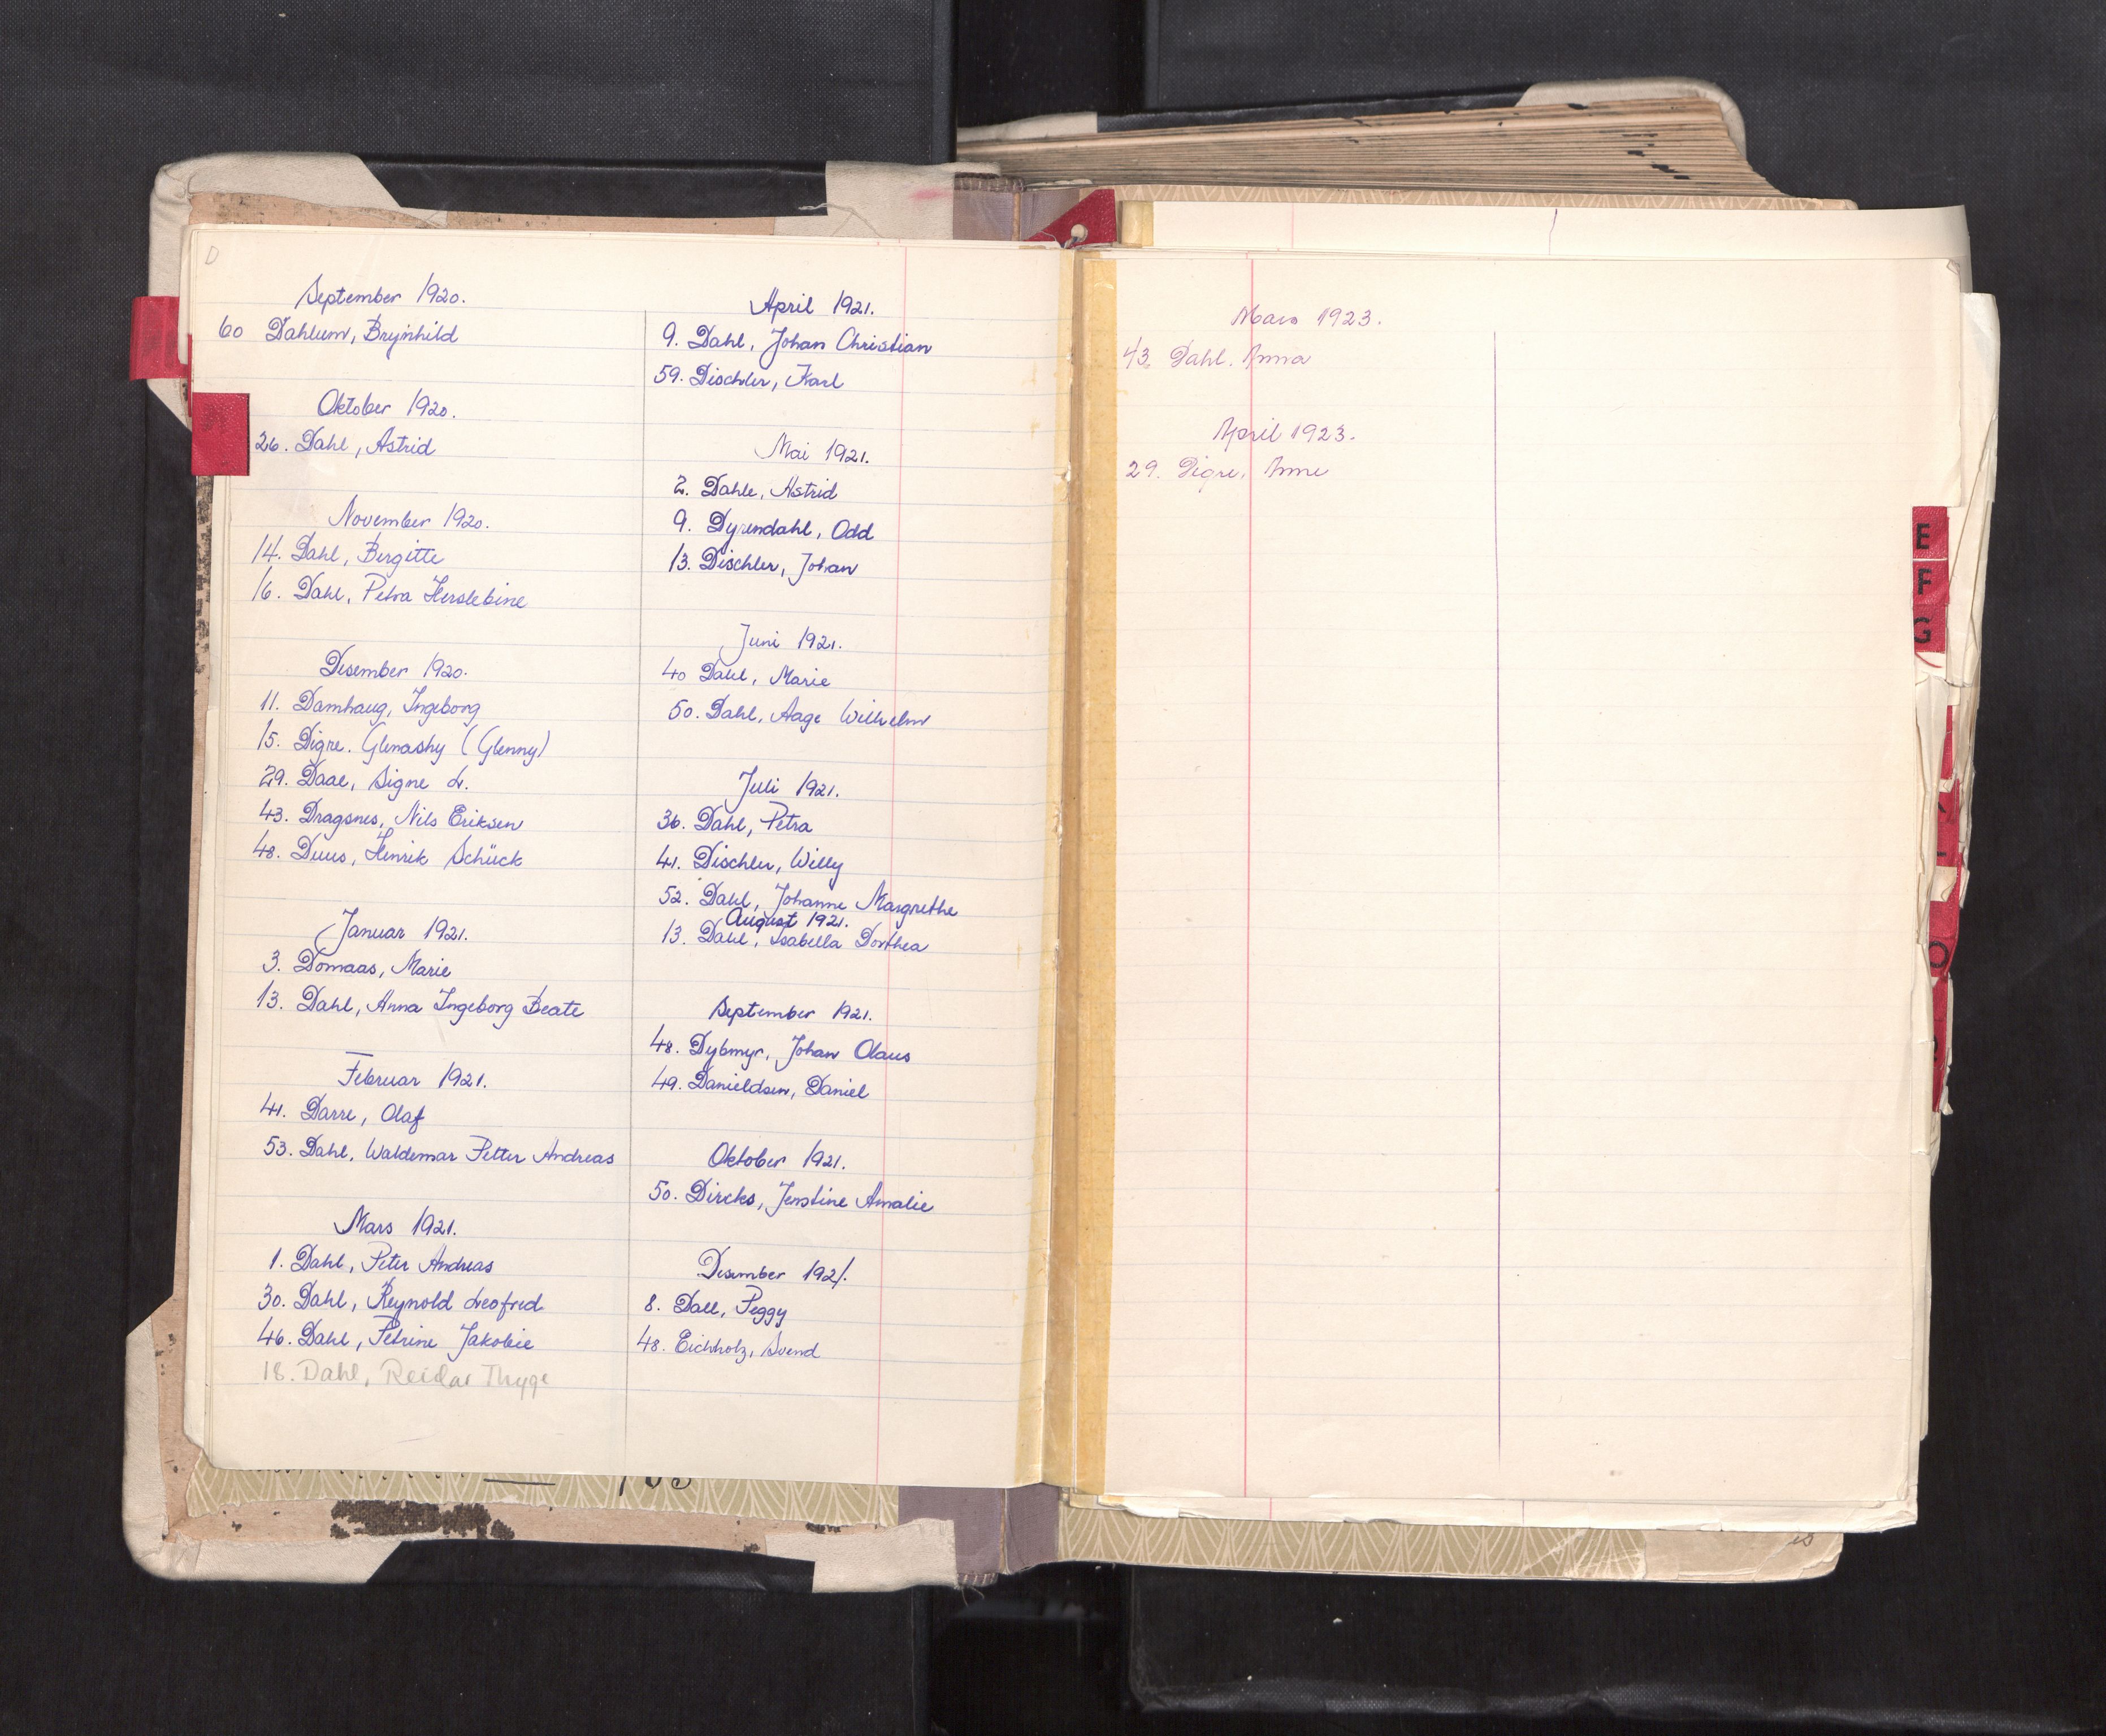 D
September 1920.
60 Dahlum, Brynhild
Oktober 1920.
26. Dahl, Astrid
November 1920.
14. Dahl, Bergitte
16. Dahl, Petra Herslebine
Desember 1920.
11. Damhaug, Ingeborg
15. Digre. Glenashy (Glenny)
29. Daae, Signe L.
43. Dragsnes, Nils Eriksen
48. Duus, Henrik Schück
Januar 1921.
3. Domaas, Marie
13. Dahl, Anna Ingeborg Beate
Februar 1921.
41. Darre, Olaf
53. Dahl, Waldemar Petter Andreas
Mars 1921.
1. Dahl, Peter Andreas
30. Dahl, Reynold Leofred
46. Dahl, Petrine Jakobie
18. Dahl, Reidar Thyge
April 1921.
9. Dahl, Johan Christian
59. Dischler, Karl
Mai 1921.
2. Dahle, Astrid
9. Dyrendahl, Odd
13. Dischler, Johan
Juni 1921.
40 Dahl, Marie
50. Dahl, Aage Wilhelm
Juli 1921.
36. Dahl, Petra
41. Dischler, Willy
52. Dahl, Johanne Margrethe
August 1921.
13. Dahl, Isabella Dorthea
September 1921.
48. Dybmyr, Johan Olaus
49. Danieldsen, Daniel
Oktober 1921.
50. Dircks, Jenstine Amalie
Desember 1921.
8. Dall, Peggy
48. Eichholz, Svend
Mars 1923.
43. Dahl. Anna
April 1923.
29. Digre, Anne
E
F
G
O